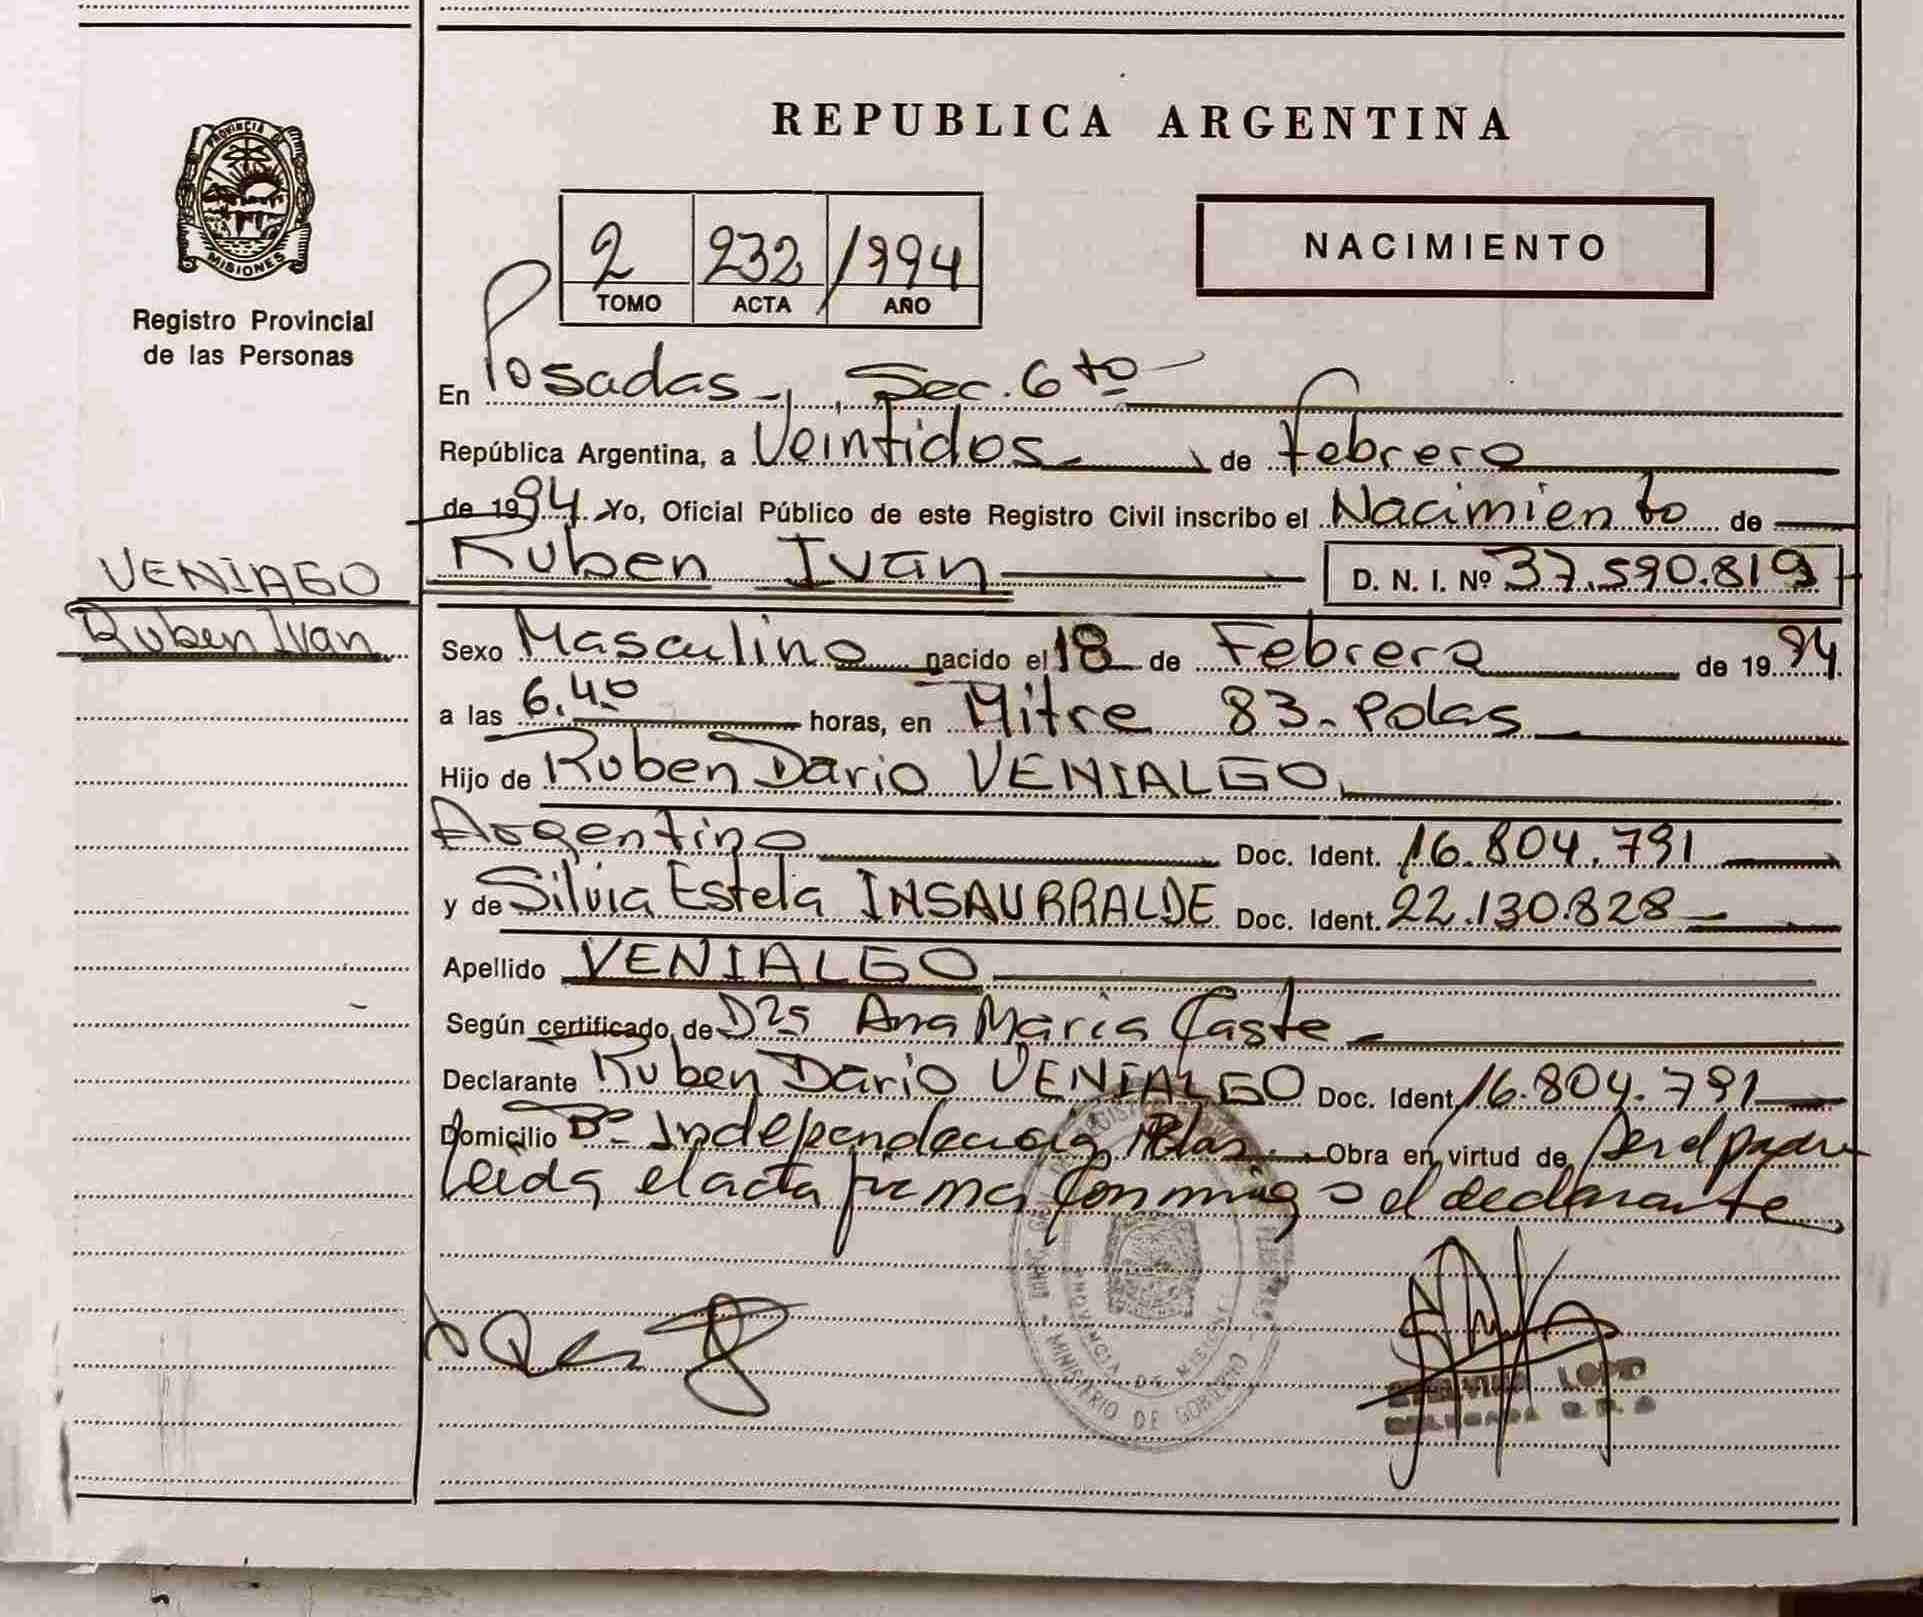 PROVINCIA DE
MISIONES
Registro Provincial
de las Personas
VENIAGO
Ruben Ivan
REPUBLICA ARGENTINA
2 232 1994
TOMO ACTA AÑO
NACIMIENTO
En Posadas, Sec. 6to
República Argentina, a Veintidos de Febrero
de 1994. Yo, Oficial Público de este Registro Civil inscribo el Nacimiento de
Ruben Ivan D. N. I. Nº 37.590.819
Sexo Masculino nacido el 18 de Febrero de 1994
a las 6.40 horas, en Mitre 83 - Pdas
Hijo de Ruben Dario VENIALGO,
Argentino Doc. Ident. 16.804.791
y de Silvia Estela INSAURRALDE Doc. Ident. 22.130.828
Apellido VENIALGO
Según certificado de Ana Maria Caste
Declarante Ruben Dario VENIALGO Doc. Ident. 16.804.791
Domicilio Bº Independencia Pdas. Obra en virtud de ser el padre
Leida el acta firma conmigo el declarante
MINISTERIO DE GOBIERNO
PROVINCIA DE MISIONES
DELEGADA